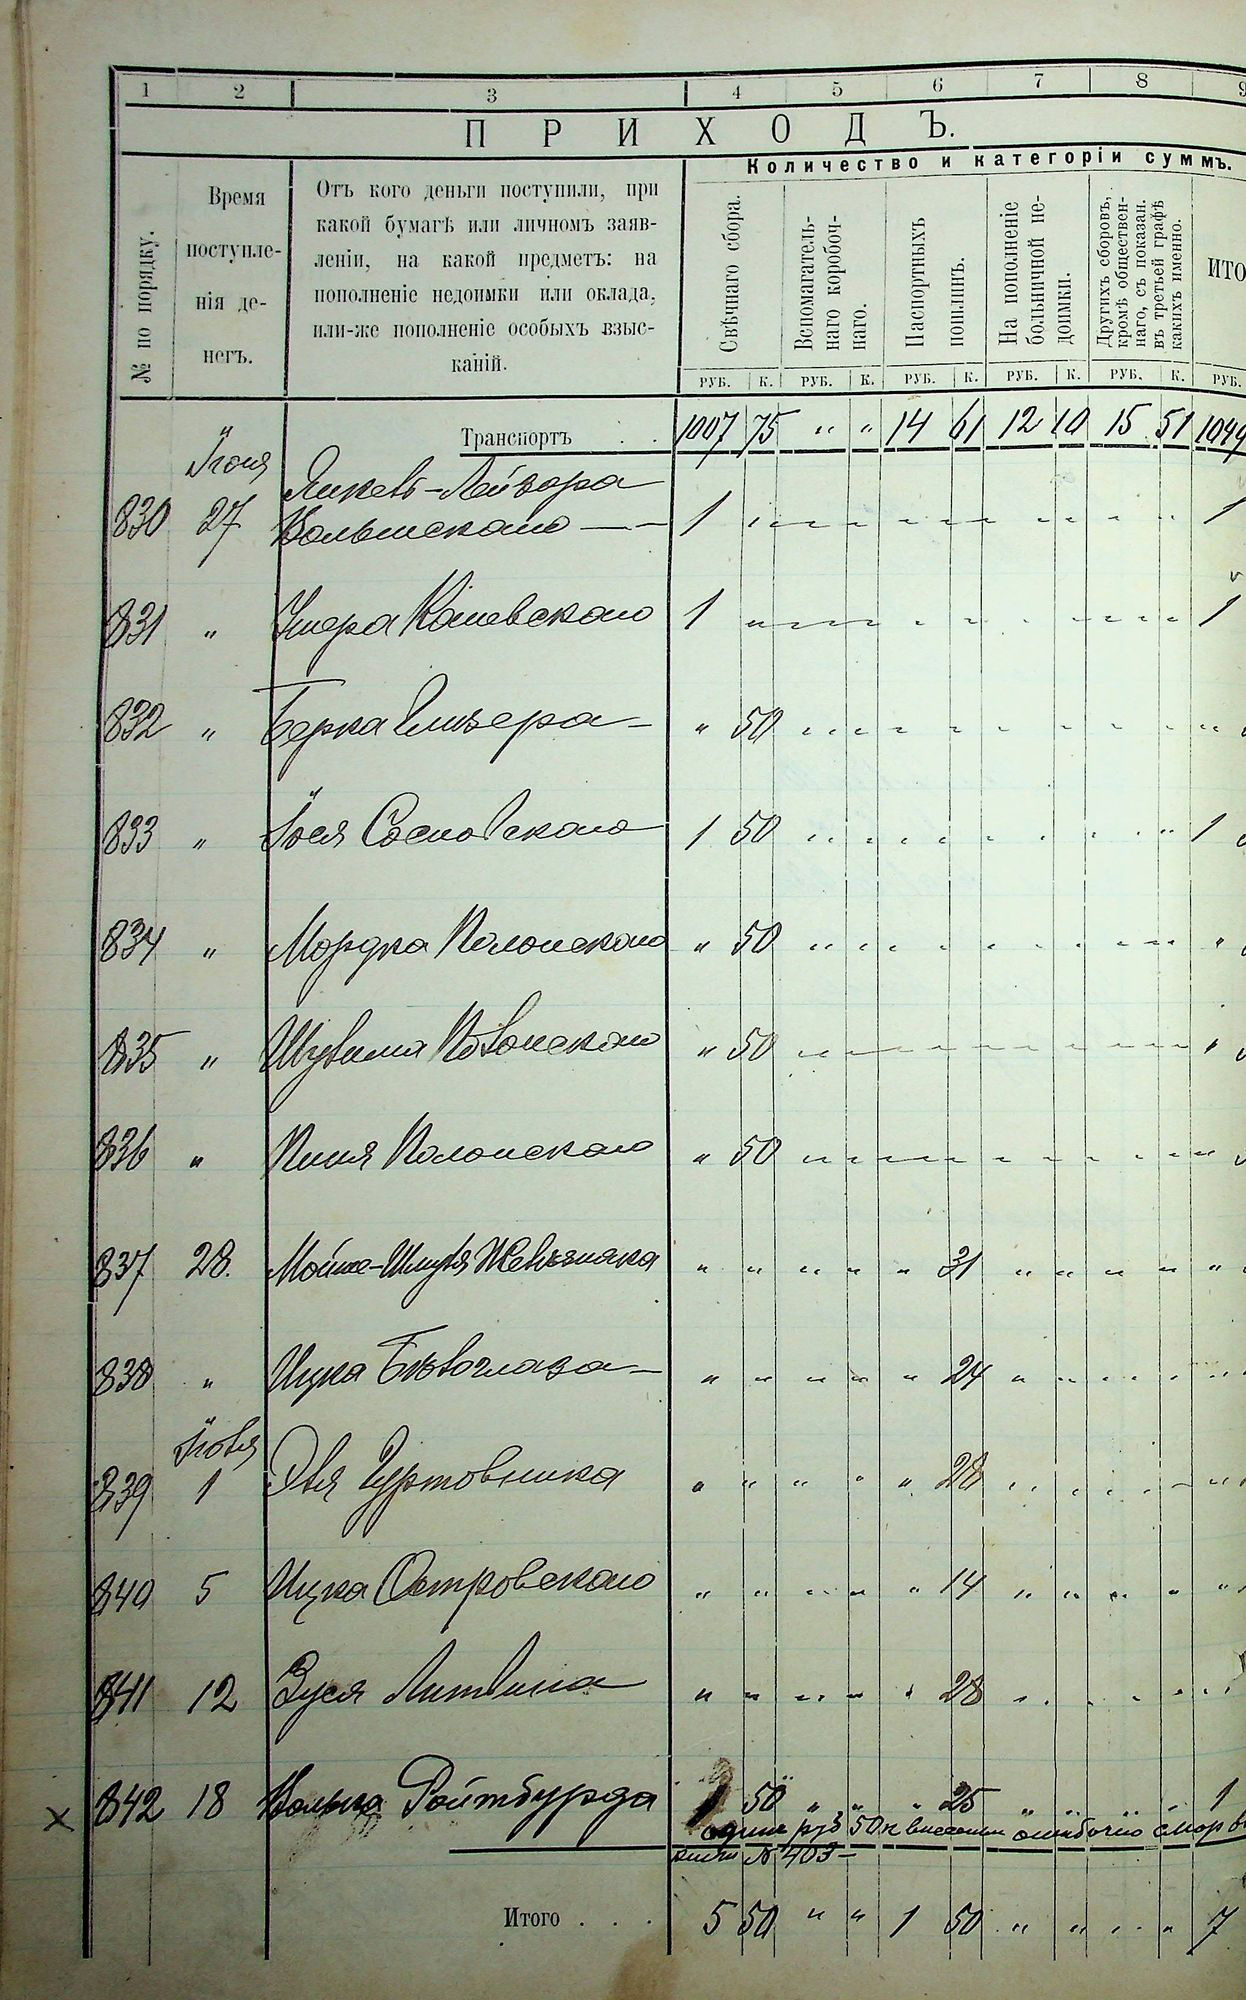 1 2 3 4 5 6 7 8 9
ПРИХОДЪ.
Количество и категоріи суммъ.
№ по порядку.
Время
поступле-
нія де-
негъ.
Отъ кого деньги поступили, при
какой бумагѣ или личномъ заяв-
леніи, на какой предметъ: на
пополненіе недоимки или оклада,
или-же пополненіе особыхъ взыс-
каній.
Свѣчнаго сбора.
Вспомагатель-
наго коробоч-
наго.
Паспортныхъ
пошлинъ.
На пополненіе
больничной не-
доимки.
Другихъ сборовъ,
кромѣ обществен-
наго, съ показан.
въ третьей графѣ
какихъ именно.
ИТО
РУБ. К. РУБ. К. РУБ. К. РУБ. К. РУБ. К. РУБ.
Транспортъ . . 1007 75 " " 14 61 12 10 15 51 1049
Іюня
830 27 Янкель-Лейзора
1 1
831 " Умера Каневскаго 1 1
832 " Берка Глизера " 50
833 " Іося Сосновскаго 1 50 1
834 " Мордка Полонскаго " 50
835 " Полонскаго " 50
836 " Пиня Полонскаго " 50
837 28. Мойше-Шмуля Желѣзняка " " " " " 31 " " " " "
838 " Ицка Бѣлоглаза " " " " " 24
Іюля
839 1 Эля Гуртовника " " " " " 28
840 5 Ицка Островскаго " " " " " 14
841 12 Зуся Литвина " " " " " 28
x 842 18 Волька Ройтбурда 1 50 " " " 25 " " " " 1
один руб 50 к внесены ошибочно
№ 403
Итого . . . 5 50 " " 1 50 " " " " 7